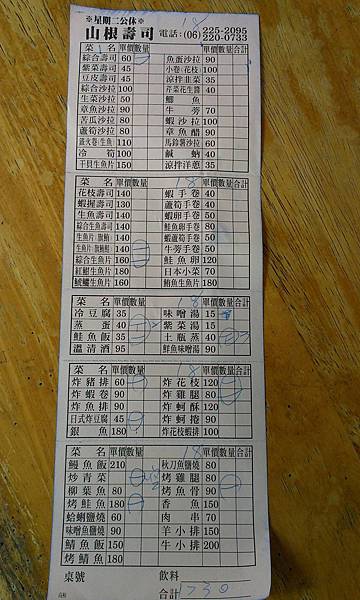 ※星期二公休※ 18
山根壽司 電話:(06) 225-2095
220-0733
菜名 單價 數量 菜名 單價 數量 合計
綜合壽司 60 魚蛋沙拉 90
紫菜壽司 45 小卷(花枝) 100
豆皮壽司 45 涼拌韭菜 35
綜合沙拉 100 芹菜花生醬 40
生菜沙拉 50 鯽魚
章魚沙拉 90 牛蒡 70
苦瓜沙拉 80 蝦沙拉 100
蘆筍沙拉 80 章魚醋 90
鐵火卷(生魚) 110 馬鈴薯沙拉 60
冷筍 100 鹹蜊 40
干貝生魚片 150 涼拌洋蔥 35
菜名 單價 數量 18 菜名 單價 數量 合計
花枝壽司 140 蝦手卷 40
蝦握壽司 130 蘆筍手卷 40
生魚壽司 140 蝦卵手卷 50
綜合生魚壽司 140 鮭魚卵手卷 80
生魚片(旗鮪) 140 蝦蘆筍手卷 50
生魚片(旗魚鮭) 140 牛蒡手卷 50
綜合生魚片 160 鮭魚卵 120
紅魽生魚片 180 日本小菜 70
鮪魚生魚片 180
菜名 單價 數量 18 菜名 單價 數量 合計
冷豆腐 35 味噌湯 15
蒸蛋 40 紫菜湯 15
鮭魚飯 35 土瓶蒸 40
溫清酒 95 鮮魚味噌湯 90
菜名 單價 數量 18 菜名 單價 數量 合計
炸豬排 60 炸花枝 120
炸蝦卷 90 炸雞腿 80
炸魚排 90 炸蚵酥 120
日式炸豆腐 45 炸蚵捲 90
銀魚 180 炸花枝蝦排 100
菜名 單價 數量 18 菜名 單價 數量 合計
鰻魚飯 210 秋刀魚鹽燒 80
炒青菜 烤雞腿 80
柳葉魚 80 烤魚骨 90
烤鮭魚 180 香魚 150
蛤蜊鹽燒 100 肉串 70
味噌魚鹽燒 100 羊小排 150
鯖魚飯 150 牛小排 200
烤鯖魚 180
桌號 飲料
合計 1730